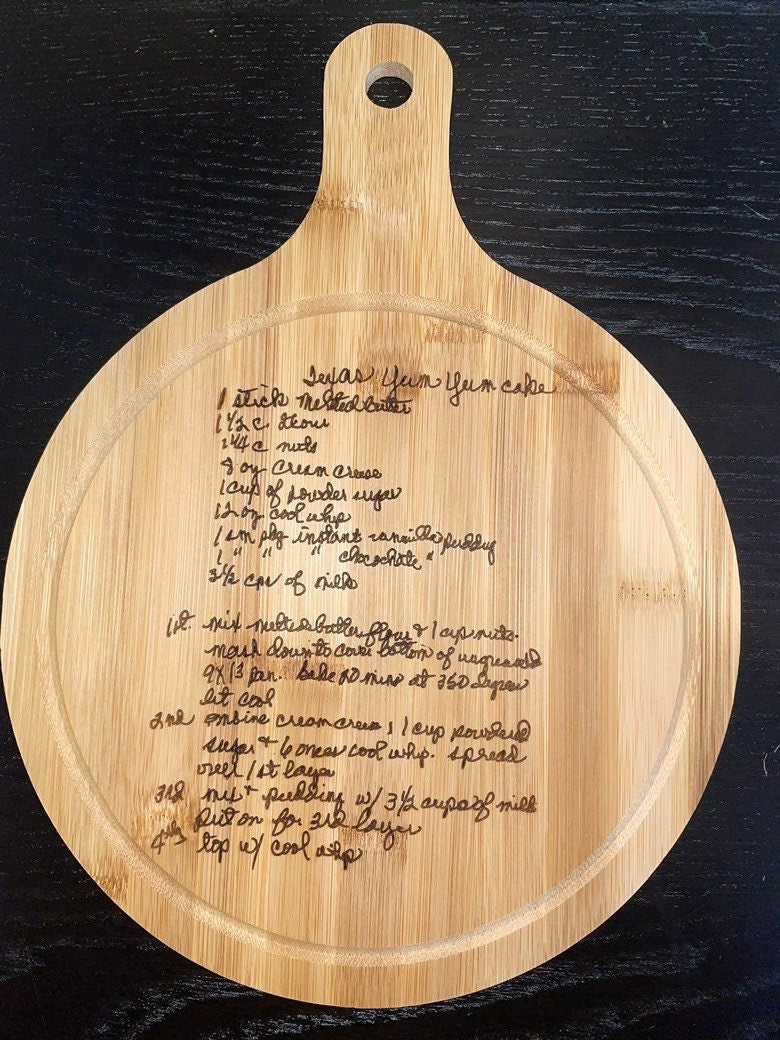 Texas Yum Yum cake
1 stick melted butter
1 1/2 c flour
1 1/4 c nuts
8 oz cream cheese
1 cup of powder sugar
12 oz cool whip
1 sm pkg instant vanilla pudding
1 " " " chocochate "
3 1/2 cps of milk
1st. mix melted butter flour & 1 cup nuts.
mash down to cover bottom of ungreased
9X13 pan. bake 20 mins at 350 degree
let cool
2nd combine cream cheese, 1 cup powdered
sugar & 6 onces cool whp. spread
over 1st layer
3rd mix pudding w/ 3 1/2 cups of milk
Put on for 3rd layer
4th top w/ cool whp